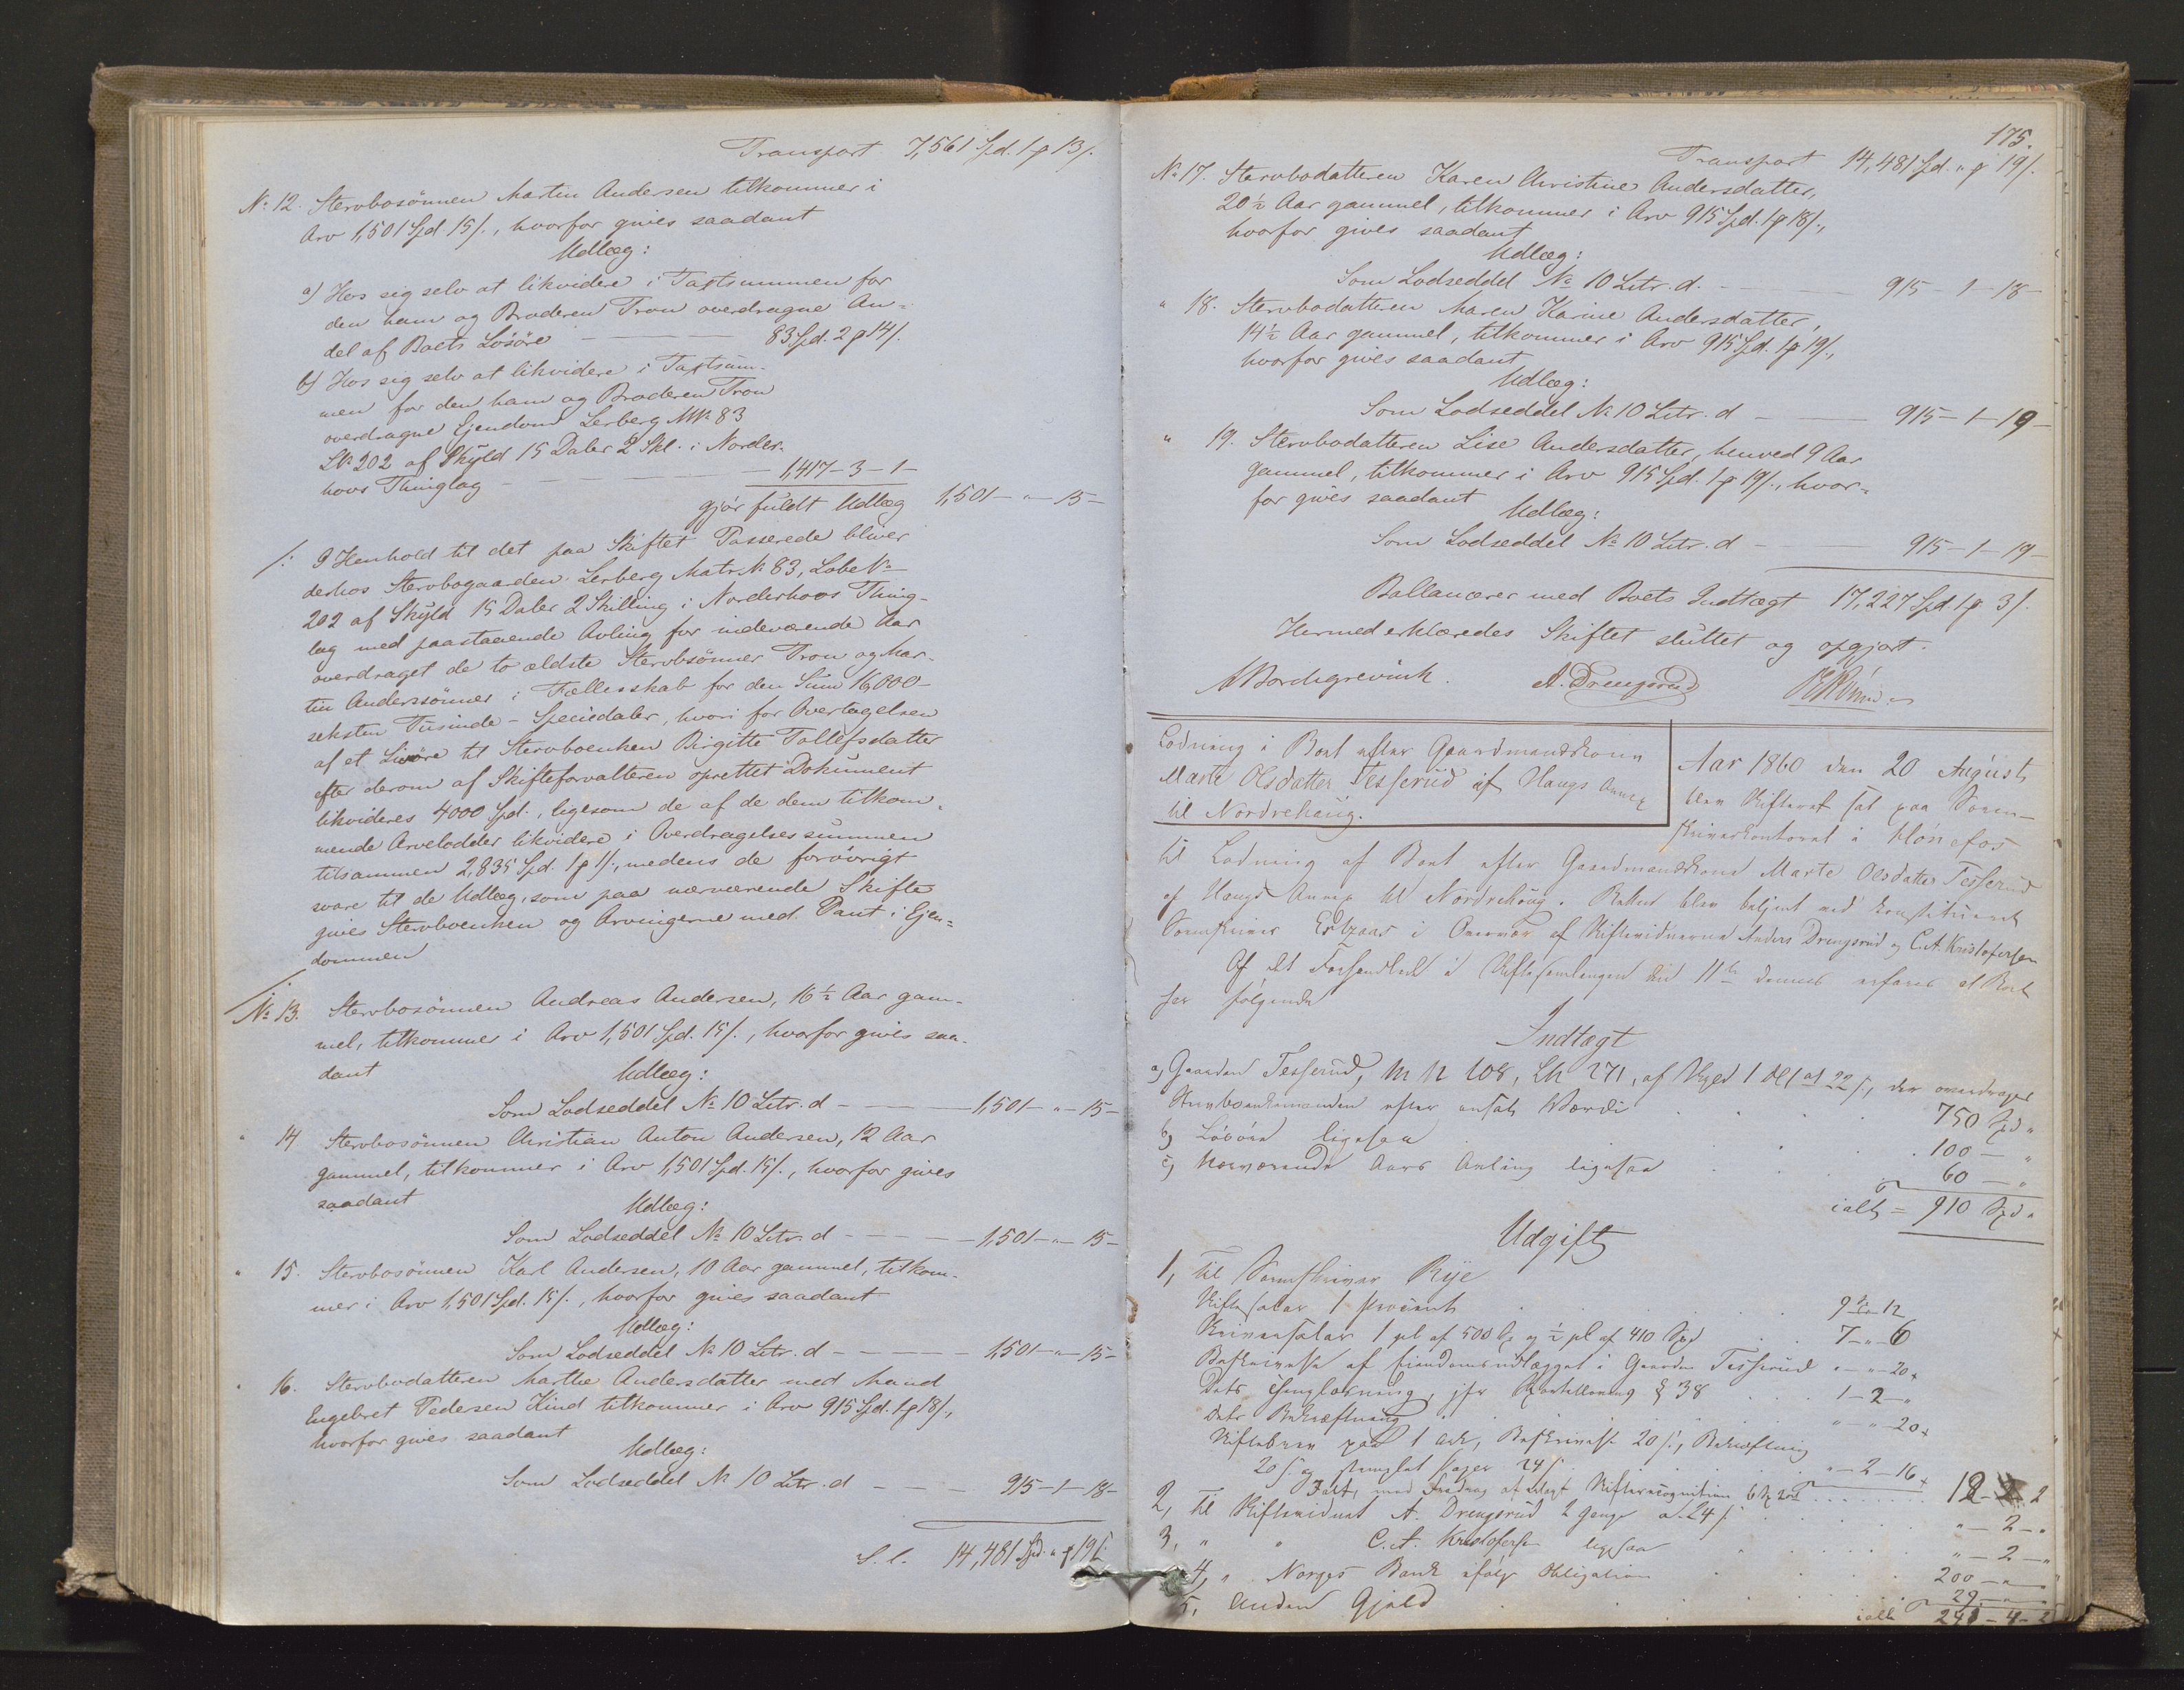 Transport 7,561 Spd. 1 ƿ 13/.
No 12. Stervbosønnen Martin Andersen tilkommer i
Arv 1,501 Spd 15/., hvorfor gives saadant
Udlæg:
a) Hos sig selv at likvidere i Taxtsummen for
den ham og Broderen Tron overdragne An-
del af Boets Løsøre 83 Spd. 2 ƿ 14/.
b) Hos sig selv at likvidere i Taxtsum-
men for den ham og Broderen Tron
overdragne Ejendom Lerberg MN 83
LN 202 af Skyld 15 Daler 2 Skl. i Norder-
hovs Thinglag 1,417-3-1-
gjør fuldt Udlæg 1,501 - " - 15 -
/: I Henhold til det paa Skiftet Passerede bliver
derhos Stervbogaarden Lerberg Matr. N 83, Løbe No
202 af Skyld 15 Daler 2 Skilling i Norderhovs Thing-
lag med paastaaende Avling for indeværende Aar
overdraget de to ældste Stervbsønner Tron og Mar-
tin Anderssønner i Fællesskab for den Sum 16,000-
seksten Tusinde - Speciedaler, hvori for Overtagelsen
af et Livøre til Stervboenken Birgitte Tollefsdatter
efter derom af Skifteforvalteren oprettet Dokument
likvideres 4000 Spd., ligesom de af de dem tilkom-
mende Arvelodder likvidere i Overdragelsessummen
tilsammen 2,835 Spd. 1 ƿ 1/., medens de forøvrigt
svare til de Udlæg, som paa nærværende Skifte
gives Stervboenken og Arvingerne med Pant i Ejen-
dommen
No 13. Stervbosønnen Andreas Andersen, 16 ½ Aar gam-
mel, tilkommer i Arv 1,501 Spd. 15/., hvorfor gives saa-
dant
Udlæg:
Som Lodseddel No 10 Litr. d - 1,501 - " - 15 -
" 14 Stervbosønnen Christian Anton Andersen, 12 Aar
gammel, tilkommer i Arv 1,501 Spd. 15/., hvorfor gives
saadant
Udlæg:
Som Lodseddel No 10 Litr. d - 1,501 - " - 15 -
" 15. Stervbosønnen Karl Andersen, 10 Aar gammel, tilkom-
mer i Arv 1,501 Spd. 15/., hvorfor gives saadant
Udlæg:
Som Lodseddel No 10 Litr. d - 1,501 - " - 15 -
" 16. Stervbodatteren Marthe Andersdatter med Mand
Engebret Pedersen Kind tilkommer i Arv 915 Spd. 1 ƿ 18/.,
hvorfor gives saadant
Udlæg:
Som Lodseddel No 10 Litr. d - 915 - 1 - 18 -
S. l. 14,481 Spd. " ƿ 19/.
175.
Transport 14,481 Spd. " ƿ 19/.
No 17. Stervbodatteren Karen Christine Andersdatter,
20 ½ Aar gammel, tilkommer i Arv 915 Spd. 1 ƿ 18/.,
hvorfor gives saadant
Udlæg:
Som Lodseddel No 10 Litr. d. - 915 - 1 - 18 -
" 18. Stervbodatteren Maren Karine Andersdatter,
14 ½ Aar gammel, tilkommer i Arv 915 Spd. 1 ƿ 19/.,
hvorfor gives saadant
Udlæg:
Som Lodseddel No 10 Litr. d - 915 - 1 - 19 -
" 19. Stervbodatteren Lise Andersdatter, henved 9 Aar
gammel, tilkommer i Arv 915 Spd. 1 ƿ 19/., hvor-
for gives saadant
Udlæg:
Som Lodseddel No 10 Litr. d - 915 - 1 - 19 -
Ballancerer med Boets Indtægt 17,227 Spd. 1 ƿ 3/.
Hermed erklæredes Skiftet sluttet og opgjort.
Borchgrevink. A. Drengsrud
Lodning i Boet efter Gaardmandskone
Marte Olsdatter Tesserud af Haugs Annex
til Nordrehaug.
Aar 1860 den 20 August
blev Skifteret sat paa Soren-
skriverkontoret i Hønefos
til Lodning af Boet efter Gaardmandskone Marte Olsdatter Tesserud
af Haugs Annex til Nordrehaug. Retten blev betjent ved konstitueret
Sorenskriver i Overvær af Skiftevidnerne Anders Drengsrud og C. A. Kristofersen
Af det Forhandlede i Skiftesamlingen den 11te dennes erfares at Boet
har følgende
Indtægt
a, Gaarden Tesserud, M N 108, LN 271, af Skyld 1 22 /., der overdrages
Stervboenkemanden efter ansat Værdi 750 Spd "
b, Løsøre ligesaa 100 - "
c, Nærværende Aars Avling ligesaa 60 - "
ialt = 910 Spd "
Udgift
1, Til Sorenskriver Rye
Skiftesalær 1 procent 9 - 12
Skriversalær 1 pCt af 500 Sp og ½ pCt af 410 Spd 7 - " - 6
Beskrivelse af Eiendomsudlægget i Gaarden Tesserud " - " - 20
Dets Thinglæsning, jfr Sportelloven § 38 1 - 2 - "
Dets Bekræftning " - " - 20
Skiftebrev paa 1 Ark, Beskrivelse 20 /, Bekræftning
20 / og stemplet Papir 24 / " - 2 - 16
2, til Skiftevidnet A. Drengsrud 2 Gange a 24 / " - 2 - "
3, " " C. A. Kristofersen ligesaa " - 2 - "
4, " Norges Bank ifølge Obligation 200 - " - "
5, Anden Gjæld 29 - " - "
ialt 241 - 4 - 2